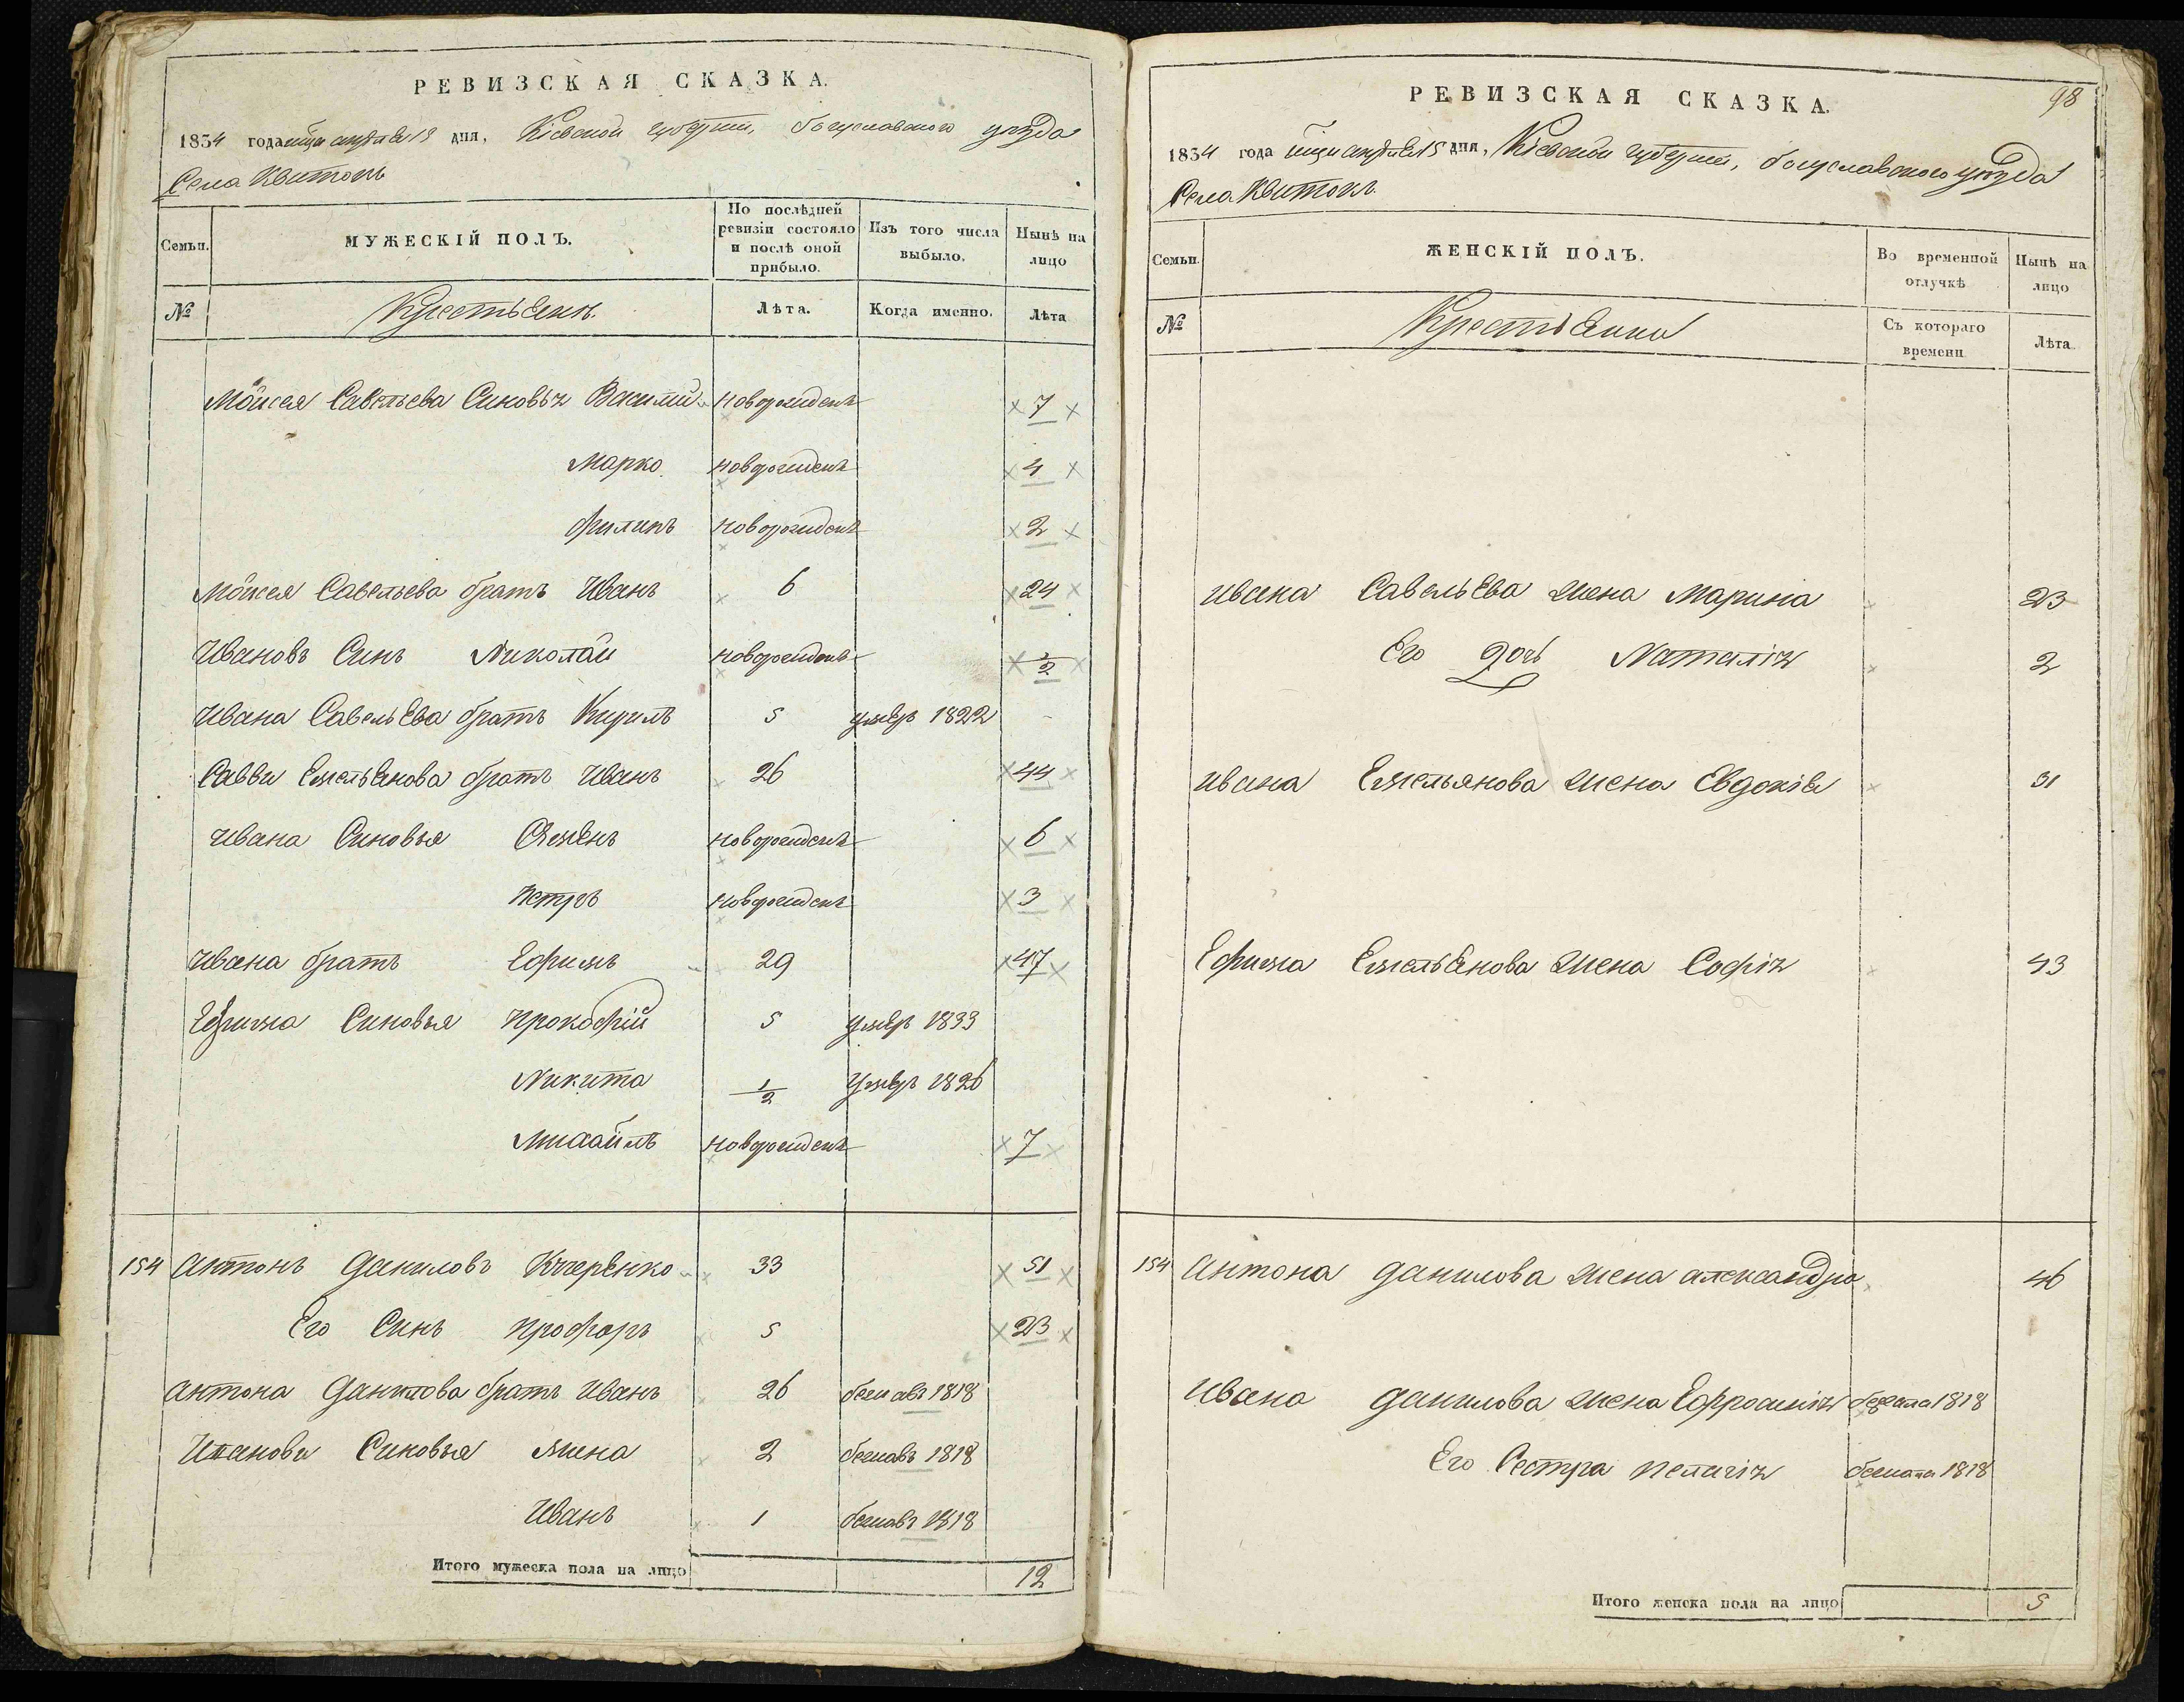 РЕВИЗСКАЯ СКАЗКА.
1834 года мца апреля 15 дня, Кіевской губерніи, богуславского уезда
Села Квитокъ
Семьи. МУЖЕСКІЙ ПОЛЪ. По послѣдней ревизіи состояло и послѣ оной прибыло. Изъ того числа выбыло. Нынѣ на лицо
№ Крестьянъ. Лѣта. Когда именно. Лѣта
Мойсея Савельева Синовья Василий новорожденъ 7
Марко новорожденъ 4
филипъ новорожденъ 2
Мойсея Савельева братъ Иванъ 6 24
Ивановъ Синъ Николай новорожденъ 1/2
Ивана Савельева братъ Кирилъ 5 умеръ 1822
Савви Емельянова братъ Иванъ 26 44
Ивана Синовья Семенъ новорожденъ 6
Петръ новорожденъ 3
Ивана братъ Ефимъ 29 47
Ефима Синовья Прокофій 5 умеръ 1833
Никита 1/2 умеръ 1826
Михайлъ новорожденъ 7
154 Антонъ Даниловъ Кучеренко 33 51
Его Синъ Профоръ 5 23
Антона Данилова братъ Иванъ 26 бежавъ 1818
Иванови Синовья Мина 2 бежавъ 1818
Иванъ 1 бежавъ 1818
Итого мужеска пола на лицо 12
98
РЕВИЗСКАЯ СКАЗКА.
1834 года мца апреля 15 дня, Кіевской губерніи, богуславского уезда
Села Квитокъ
Семьи. ЖЕНСКІЙ ПОЛЪ. Во временной отлучкѣ Нынѣ на лицо
№ Крестьянки Съ котораго времени Лѣта.
Ивана Савельева жена Марина 23
Его дочь Наталія 2
Ивана Емельянова жена Евдокія 31
Ефима Емельянова жена Софія 43
154 Антона Данилова жена Александра 46
Ивана Данилова жена Ефросинія бежала 1818
Его Сестра Пелагія бежала 1818
Итого женска пола на лицо 5